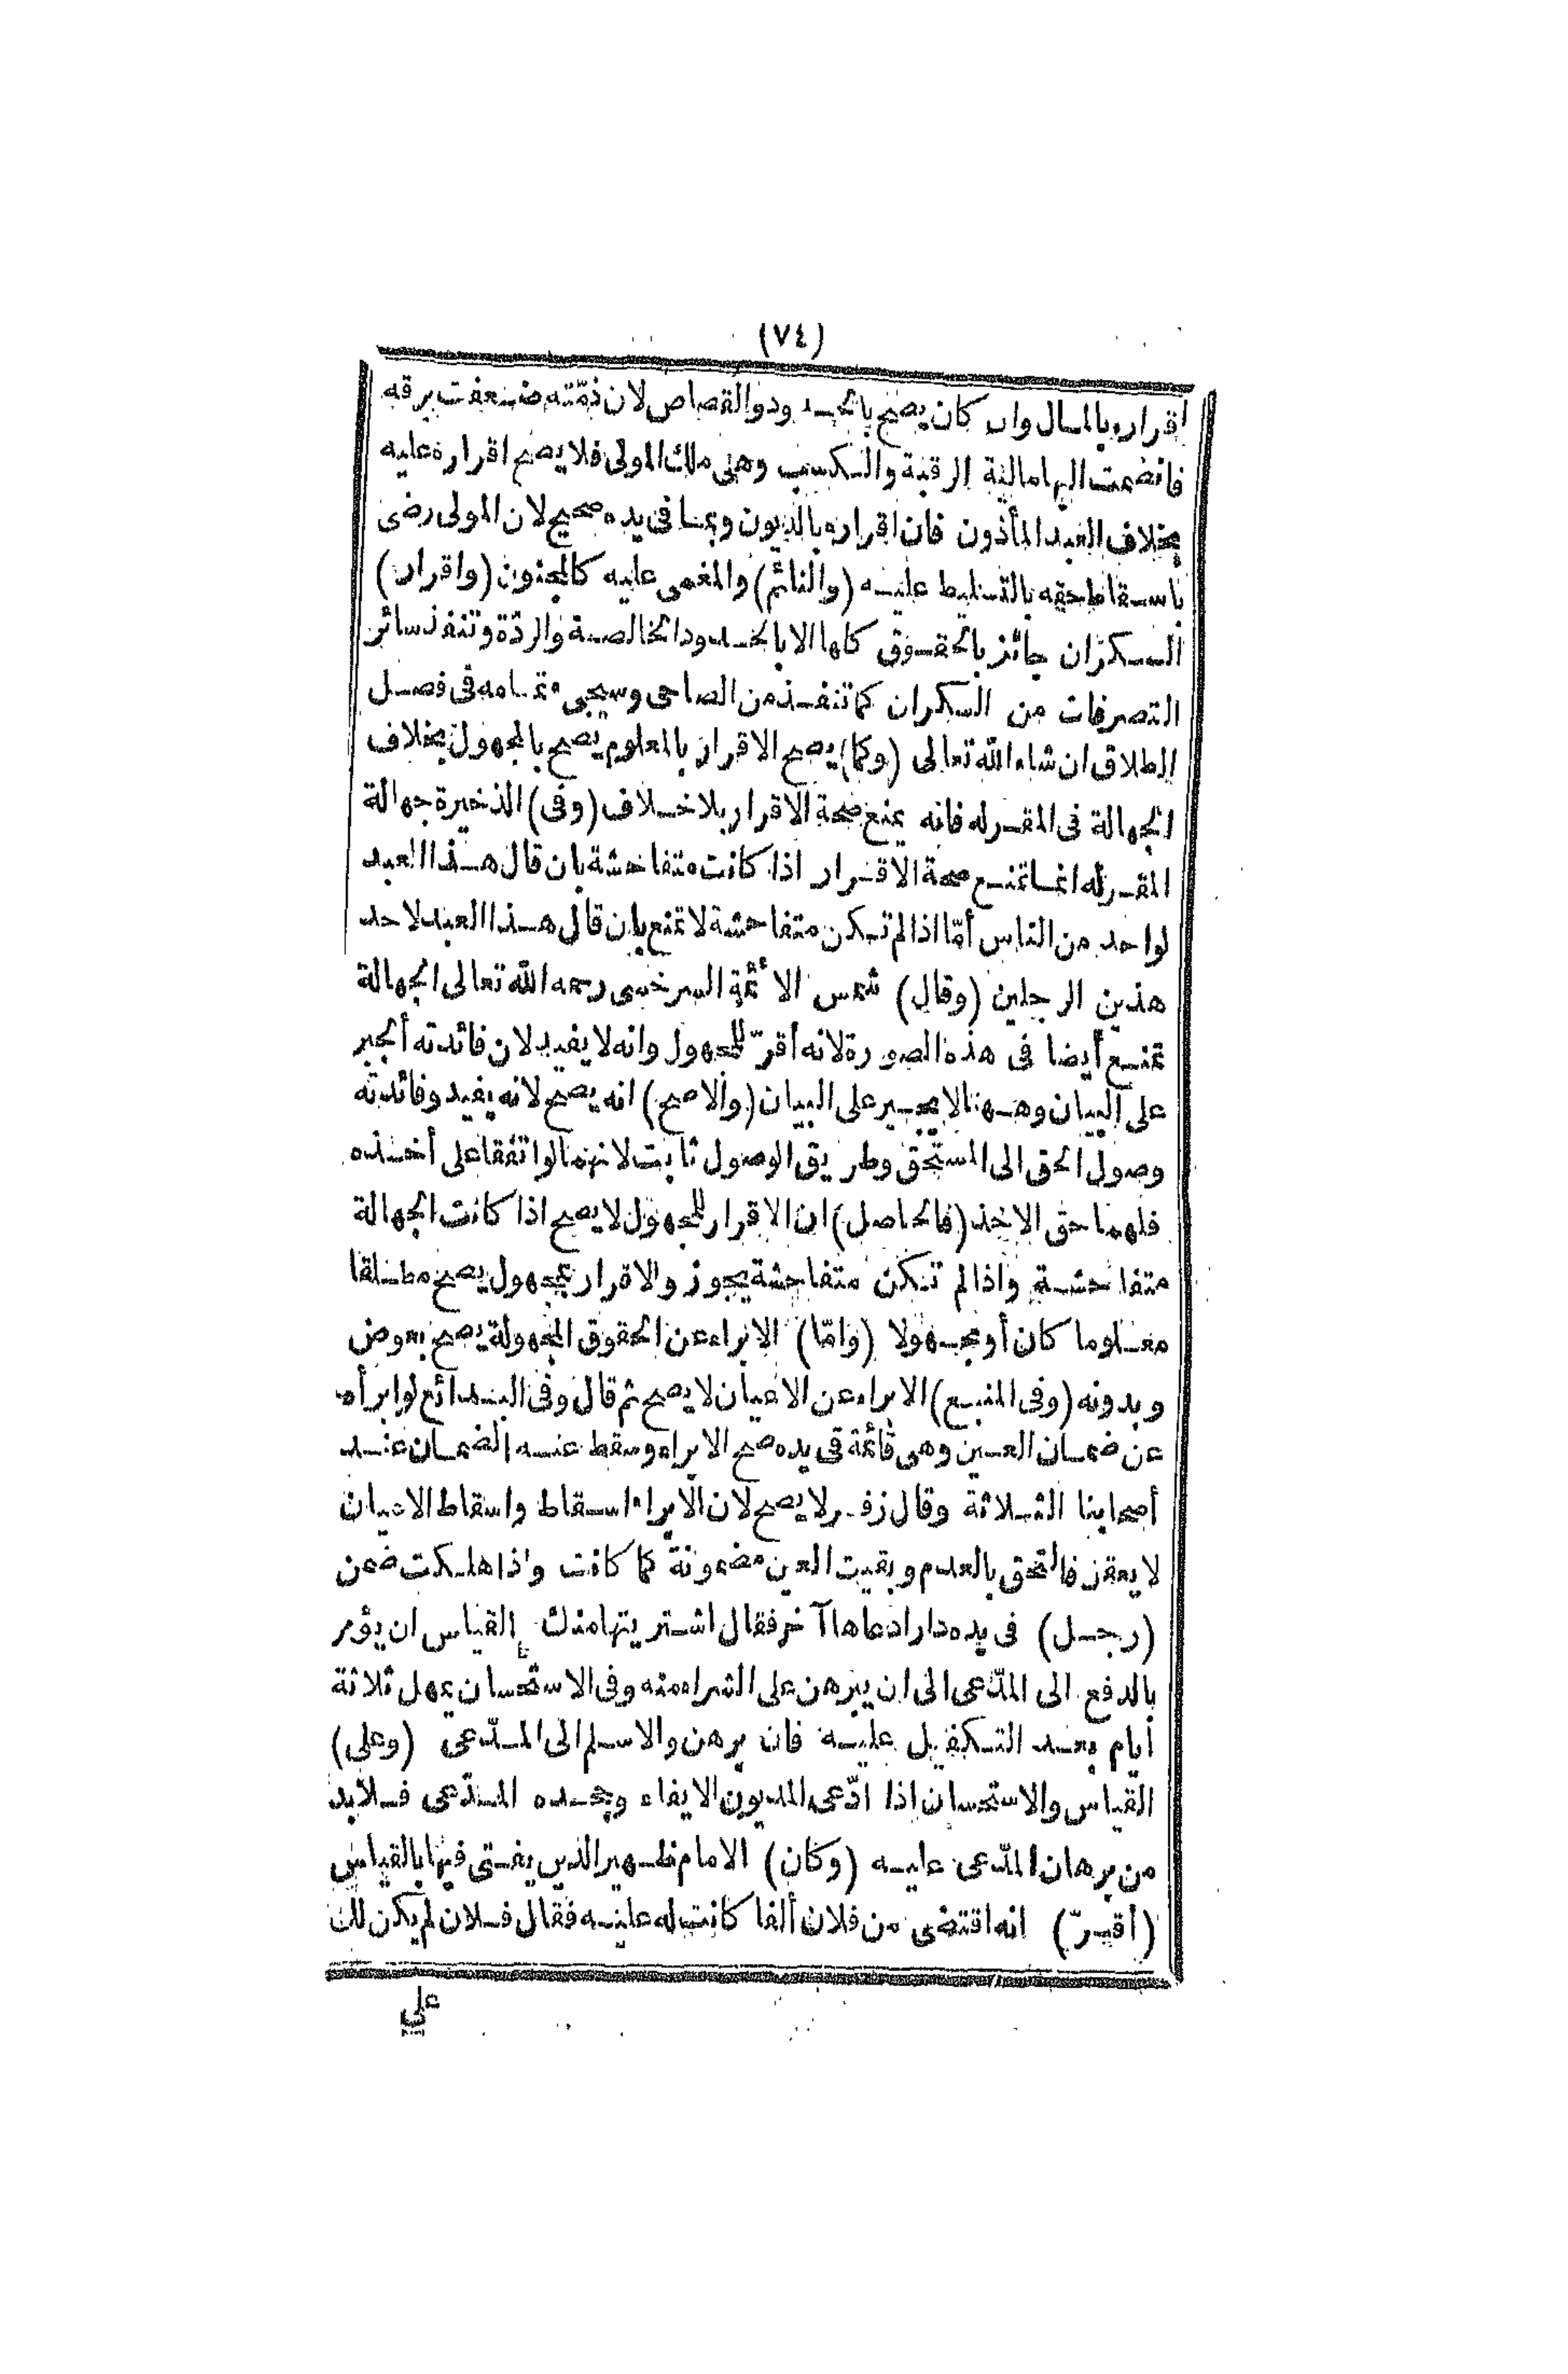 (٧٤)
اقراره بالمال وان كان يصح بالحدود والقصاص لان ذمّته ضعفت برقه
فانضمت اليها مالية الرقبة والكسب وهى ملك المولى فلا يصح اقراره عليه
بخلاف العبد المأذون فان اقراره بالديون وبما فى يده صحيح لان المولى رضى
باسقاط حقه بالتسليط عليه (والنائم) والمغمى عليه كالمجنون (واقرار)
السكران جائز بالحقوق كلها الا بالحدود الخالصة والردّة وتنفذ سائر
التصرفات من السكران كما تنفذ من الصاحى وسيجىء تمامه فى فصل
الطلاق ان شاء الله تعالى (وكما) يصح الاقرار بالمعلوم يصح بالمجهول بخلاف
الجهالة فى المقر له فانه يمنع صحة الاقرار بلا خلاف (وفى) الذخيرة جهالة
المقر له انما تمنع صحة الاقرار اذا كانت متفاحشة بان قال هذا العبد
لواحد من الناس أمّا اذا لم تكن متفاحشة لا تمنع بان قال هذا العبد لاحد
هذين الرجلين (وقال) شمس الائمة السرخسى رحمه الله تعالى الجهالة
تمنع أيضا فى هذه الصورة لانه أقرّ للمجهول وانه لا يفيد لان فائدته ألجبر
على البيان وههنا لا يجبر على البيان (والاصح) انه يصح لانه يفيد وفائدته
وصول الحق الى المستحق وطريق الوصول ثابت لانهما لو اتفقا على أخذه
فلهما حق الاخذ (فالحاصل) ان الاقرار للمجهول لا يصح اذا كانت الجهالة
متفاحشة واذا لم تكن متفاحشة يجوز والاقرار بمجهول يصح مطلقا
معلوما كان أو مجهولا (وامّا) الابراء عن الحقوق المجهولة يصح بعوض
وبدونه (وفى المنبع) الابراء عن الاعيان لا يصح ثم قال وفى البدائع لو ابرأه
عن ضمان العين وهى قائمة فى يده صح الابراء وسقط عنه الضمان عند
أصحابنا الثلاثة وقال زفر لا يصح لان الابراء اسقاط واسقاط الاعيان
لا يعقل فالتحق بالعدم وبقيت العين مضمونة كما كانت واذا هلكت ضمن
(رجل) فى يده دار ادعاها آخر فقال اشتريتها منك القياس ان يؤمر
بالدفع الى المدّعى الى ان يبرهن على الشراء منه وفى الاستحسان يمهل ثلاثة
أيام بعد التكفيل عليه فان برهن والا سلم الى المدّعى (وعلى)
القياس والاستحسان اذا ادّعى المديون الايفاء وجحده المدّعى فلا بد
من برهان المدّعى عليه (وكان) الامام ظهير الدين يفتى فيها بالقياس
(أقرّ) انه اقتضى من فلان ألفا كانت له عليه فقال فلان لم يكن لك
على